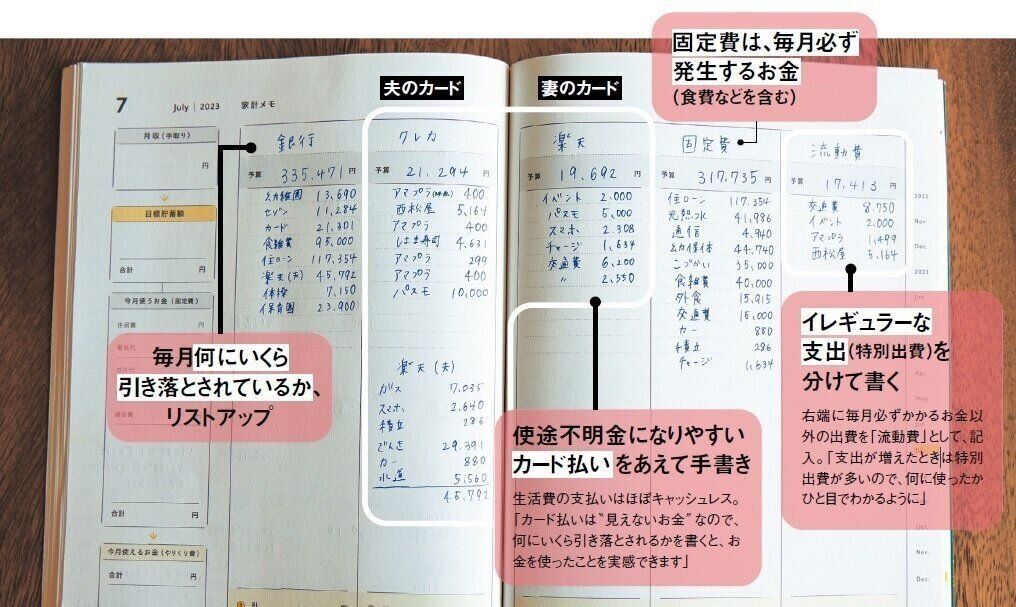 固定費は、毎月必ず
発生するお金
(食費などを含む)
夫のカード
妻のカード
7 July | 2023 家計メモ
月収(手取り)
円
目標貯蓄額
合計 円
今月使うお金(固定費)
住居費 円
合計 円
今月使えるお金(やりくり費)
合計 円
銀行
予算 335,471 円
幼稚園 13,690
セゾン 11,284
カード 21,301
食雑費 95,000
住ローン 117,354
楽天(夫) 45,792
体操 7,150
保育園 23,900
クレカ
予算 21,294 円
アマプラ 400
西松屋 5,164
アマプラ 400
はま寿司 4,631
アマプラ 299
アマプラ 400
パスモ 10,000
楽天(夫)
ガス 7,035
スマホ 2,640
積立 286
でんき 29,391
カー 880
水道 5,560
45,792
楽天
予算 19,692 円
イベント 2,000
パスモ 5,000
スマホ 2,308
チャージ 1,634
交通費 6,200
〃 2,550
固定費
予算 317,735 円
住ローン 117,354
光熱水 41,986
通信 4,940
幼保体 44,740
こづかい 35,000
食雑費 40,000
外食 15,915
交通費 15,000
カー 880
積立 286
チャージ 1,634
流動費
予算 17,413 円
交通費 8,750
イベント 2,000
アマプラ 1,499
西松屋 5,164
2022
Nov.
Dec.
2023
Jun
Apr.
May
Oct.
Nov.
Dec.
毎月何にいくら
引き落とされているか、
リストアップ
使途不明金になりやすい
カード払いをあえて手書き
生活費の支払いはほぼキャッシュレス。
「カード払いは“見えないお金”なので、
何にいくら引き落とされるかを書くと、お
金を使ったことを実感できます」
イレギュラーな
支出(特別出費)を
分けて書く
右端に毎月必ずかかるお金以
外の出費を「流動費」として、記
入。「支出が増えたときは特別
出費が多いので、何に使ったか
ひと目でわかるように」